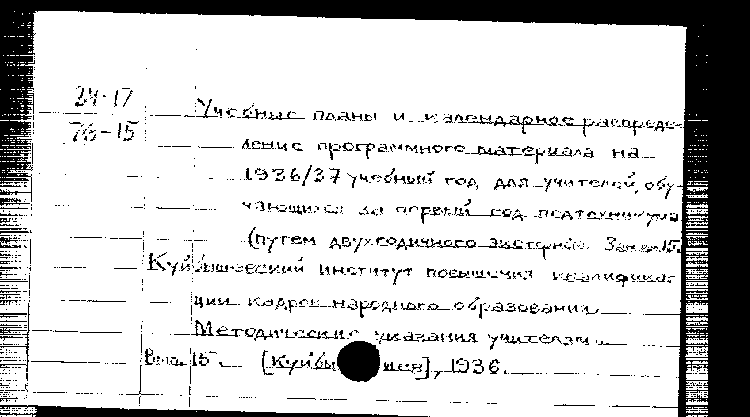 24-17
76-15
Учебные планы и календарное распреде-
ление программного материала на
1936/37 учебный год для учителей, обу-
чающихся за первый год педтехникума
(путем двухгодичного
Куйбышевский институт повышения квалифика-
ции кадров народного образования.
Методические указания учителям.
Вып. 15. [Куйбышев], 1936.